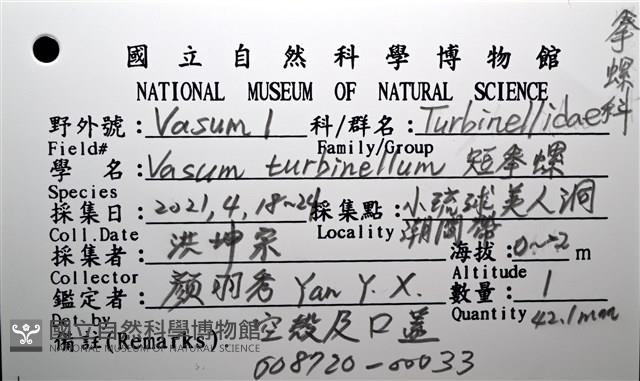 拳螺
國立自然科學博物館
NATIONAL MUSEUM OF NATURAL SCIENCE
野外號：Vasum 1 科/群名：Turbinellidae科
Field# Family/Group
學 名：Vasum turbinellum 短拳螺
Species
採集日：2021,4,18~24 採集點：小琉球美人洞
潮間帶
Coll.Date Locality
採集者：洪坤宗 海拔：0~-2 m
Collector Altitude
鑑定者：顏明秀 Yan Y. X. 數量：1
Det.by Quantity 42.1mm
國立自然科學博物館
NATIONAL MUSEUM OF NATURAL SCIENCE
備註(Remarks)： 空殼及口蓋
008720-00033